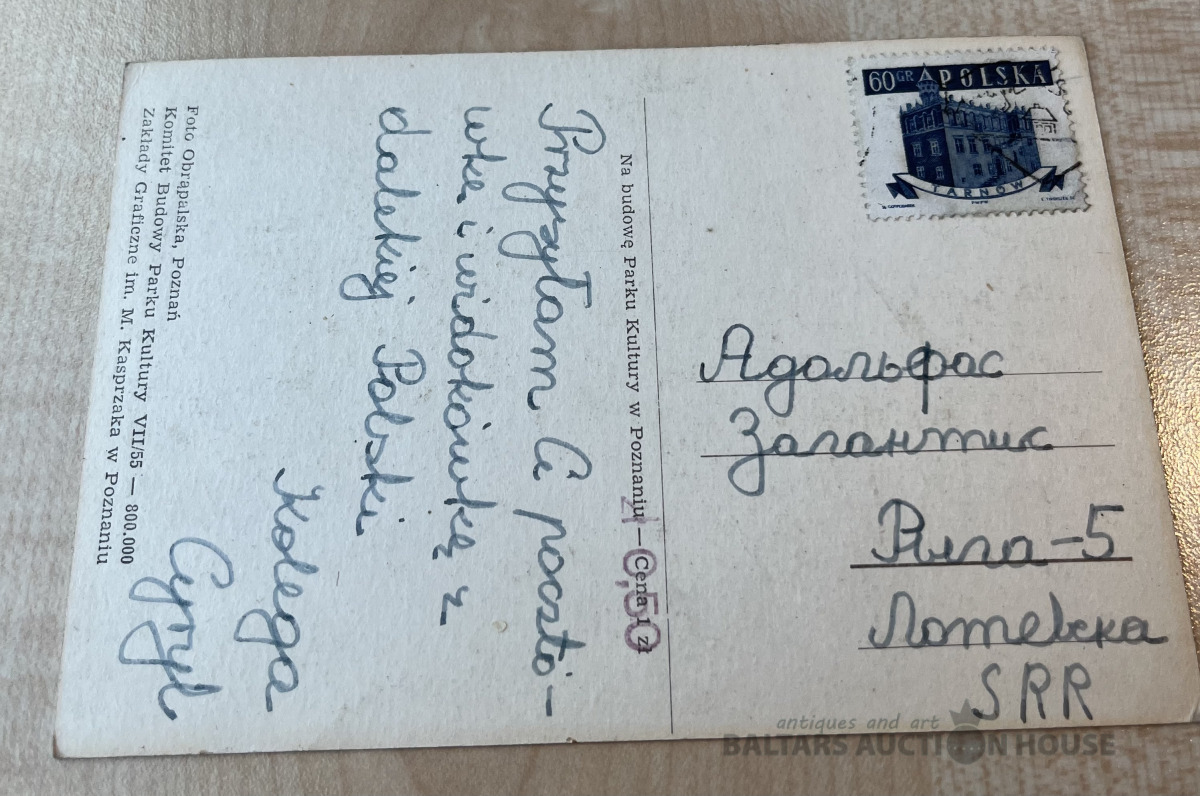 60 GR POLSKA
TARNÓW
Przysyłam Ci pocztó-
wkę i widokówkę z
dalekiej Polski
Kolega
Cyryl
Na budowę Parku Kultury w Poznaniu — Cena 1 zł
0,50
Foto Obrąpalska, Poznań
Komitet Budowy Parku Kultury VII/55 — 800.000
Zakłady Graficzne im. M. Kasprzaka w Poznaniu
Адольфас
Загантис
Рига-5
Лотевска
SRR
antiques and art
BALTARS AUCTION HOUSE